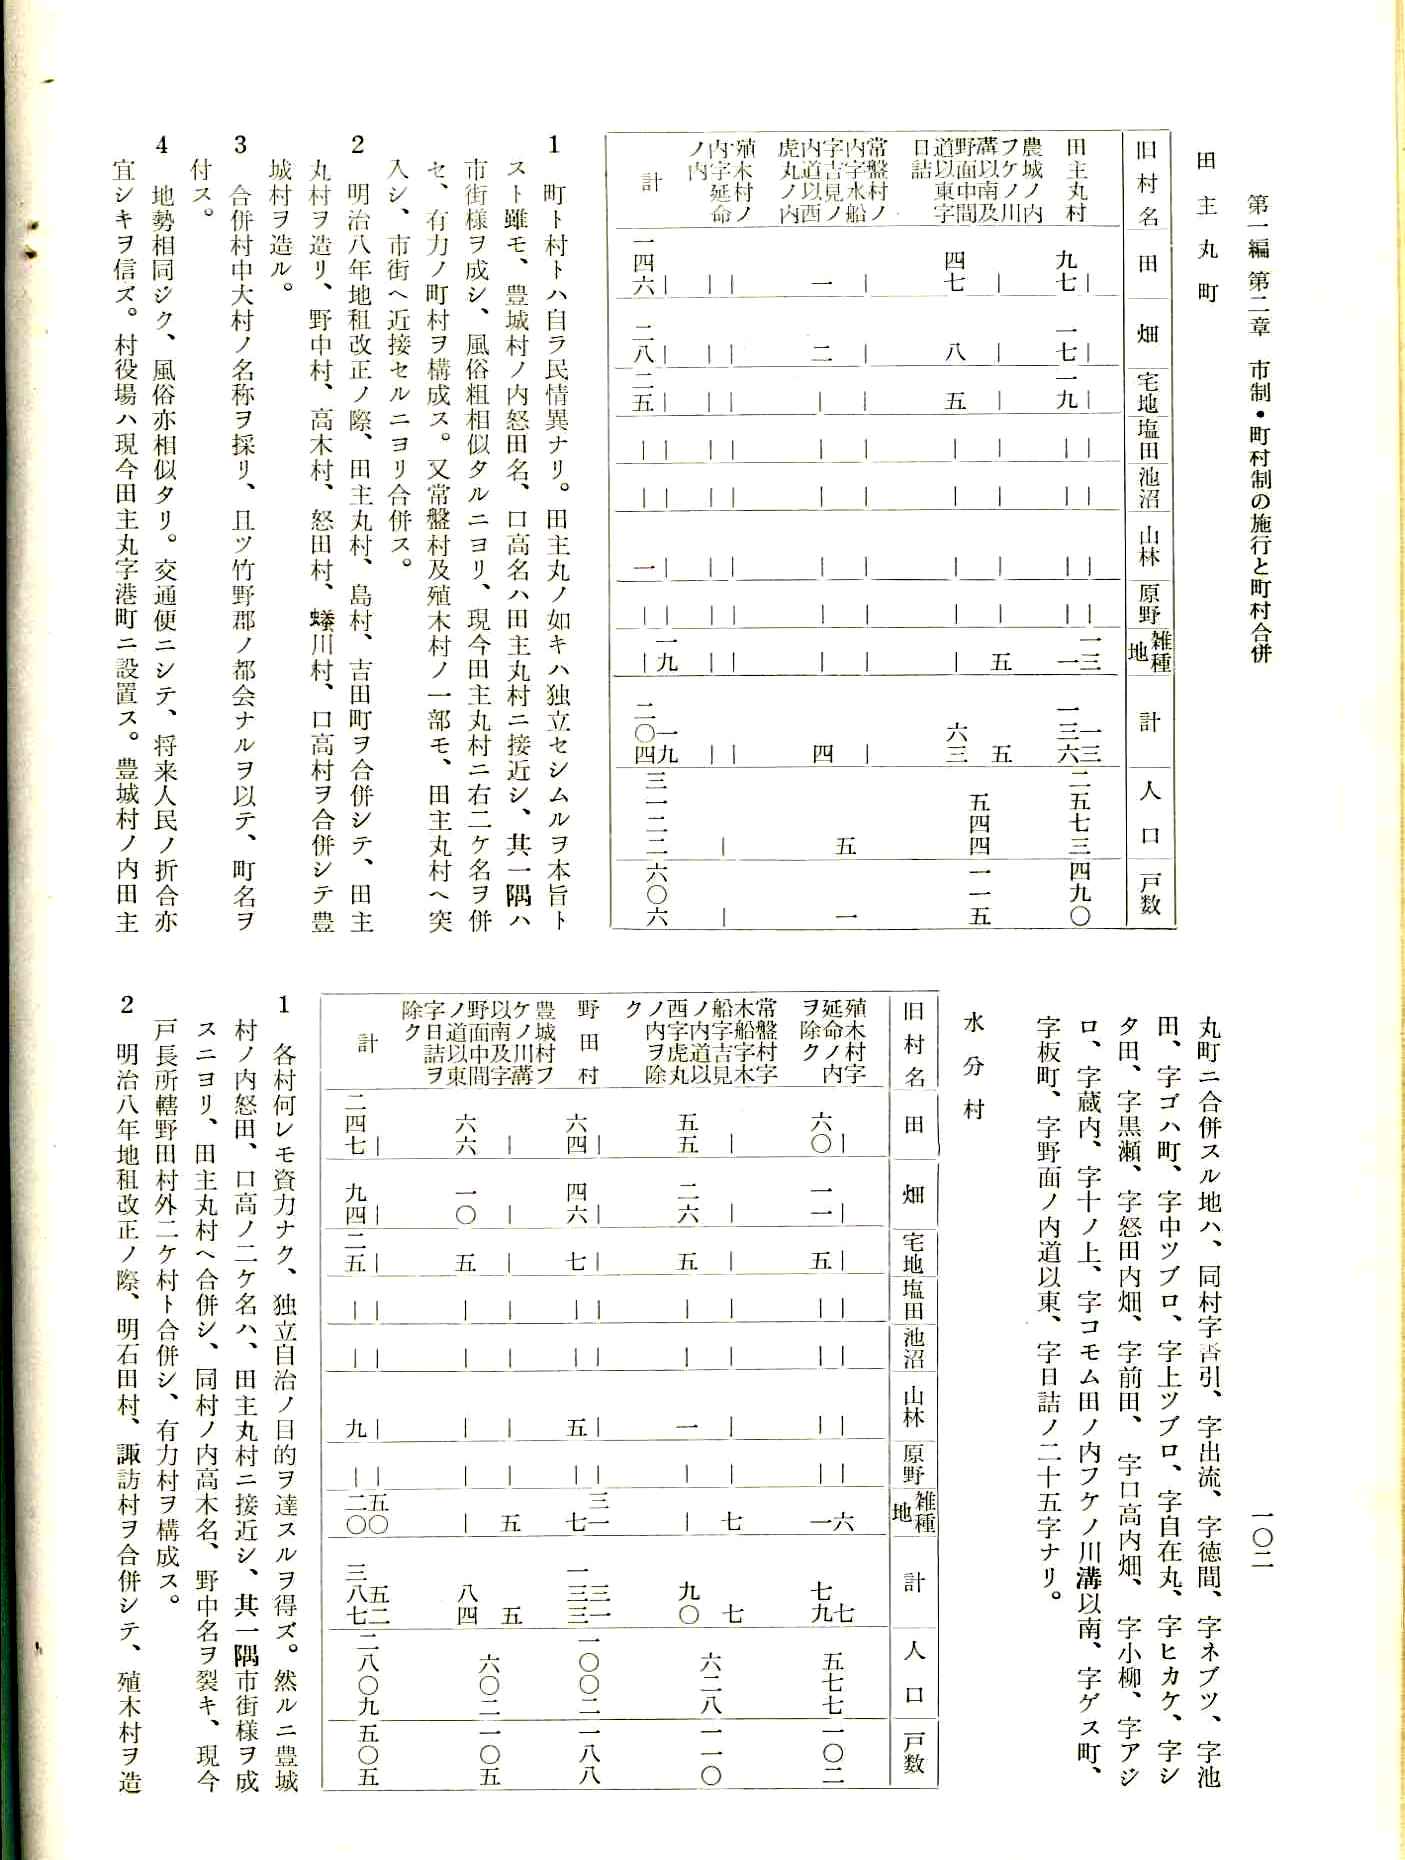 第一編 第二章 市制・町村制の施行と町村合併
一〇二
田主丸町
旧村名 田 畑 宅地 塩田 池沼 山林 原野 雑種地 計 人口 戸数
田主丸村 | | | | | | | 一三 一三 二五七三 四九〇
九七 一七 一九 | | | | 一 一三六
農城ノ内フケノ川溝以南及野面中間道以東字日詰 | | | | | | | 五 五 五四四 一一五
四七 八 五 | | | | | 六三
常盤村ノ内字水船字吉見ノ内道以西虎丸ノ内 | | | | | | | | | 五 一
一 二 | | | | | | 四
殖木村ノ内字延命ノ内 | | | | | | | | | | |
| | | | | | | | |
計 | | | | | | | 一九 一九 三一二二 六〇六
一四六 二八 二五 | | 一 | | 二〇四
1 町ト村トハ自ラ民情異ナリ。田主丸ノ如キハ独立セシムルヲ本旨ト
スト雖モ、豊城村ノ内怒田名、口高名ハ田主丸村ニ接近シ、其一隅ハ
市街様ヲ成シ、風俗粗相似タルニヨリ、現今田主丸村ニ右二ケ名ヲ併
セ、有力ノ町村ヲ構成ス。又常盤村及殖木村ノ一部モ、田主丸村ヘ突
入シ、市街ヘ近接セルニヨリ合併ス。
2 明治八年地租改正ノ際、田主丸村、島村、吉田町ヲ合併シテ、田主
丸村ヲ造リ、野中村、高木村、怒田村、蟻川村、口高村ヲ合併シテ豊
城村ヲ造ル。
3 合併村中大村ノ名称ヲ採リ、且ツ竹野郡ノ都会ナルヲ以テ、町名ヲ
付ス。
4 地勢相同ジク、風俗亦相似タリ。交通便ニシテ、将来人民ノ折合亦
宜シキヲ信ズ。村役場ハ現今田主丸字港町ニ設置ス。豊城村ノ内田主
丸町ニ合併スル地ハ、同村字沓引、字出流、字徳間、字ネブツ、字池
田、字ゴハ町、字中ツブロ、字上ツブロ、字自在丸、字ヒカケ、字シ
タ田、字黒瀬、字怒田内畑、字前田、字口高内畑、字小柳、字アジ
ロ、字蔵内、字十ノ上、字コモム田ノ内フケノ川溝以南、字ゲス町、
字板町、字野面ノ内道以東、字日詰ノ二十五字ナリ。
水分村
旧村名 田 畑 宅地 塩田 池沼 山林 原野 雑種地 計 人口 戸数
殖木村字延命ノ内ヲ除ク | | | | | | | 六 七 五七七 一〇二
六〇 一一 五 | | | | 一 七九
常盤村字木船字木船字吉見ノ内道以西字虎丸ノ内ヲ除ク | | | | | | | 七 七 六二八 一一〇
五五 二六 五 | | 一 | | 九〇
野田村 | | | | | | | 三一 三一 一〇〇二 一八八
六四 四六 七 | | 五 | 七 一三三
豊城村フケノ川溝以南及字野面中間ノ道以東字日詰ヲ除ク | | | | | | | 五 五 六〇二 一〇五
六六 一〇 五 | | | | | 八四
計 | | | | | | | 五〇 五二 二八〇九 五〇五
二四七 九四 二五 | | 九 | 二〇 三八七
1 各村何レモ資力ナク、独立自治ノ目的ヲ達スルヲ得ズ。然ルニ豊城
村ノ内怒田、口高ノ二ケ名ハ、田主丸村ニ接近シ、其一隅市街様ヲ成
スニヨリ、田主丸村ヘ合併シ、同村ノ内高木名、野中名ヲ裂キ、現今
戸長所轄野田村外二ケ村ト合併シ、有力村ヲ構成ス。
2 明治八年地租改正ノ際、明石田村、諏訪村ヲ合併シテ、殖木村ヲ造